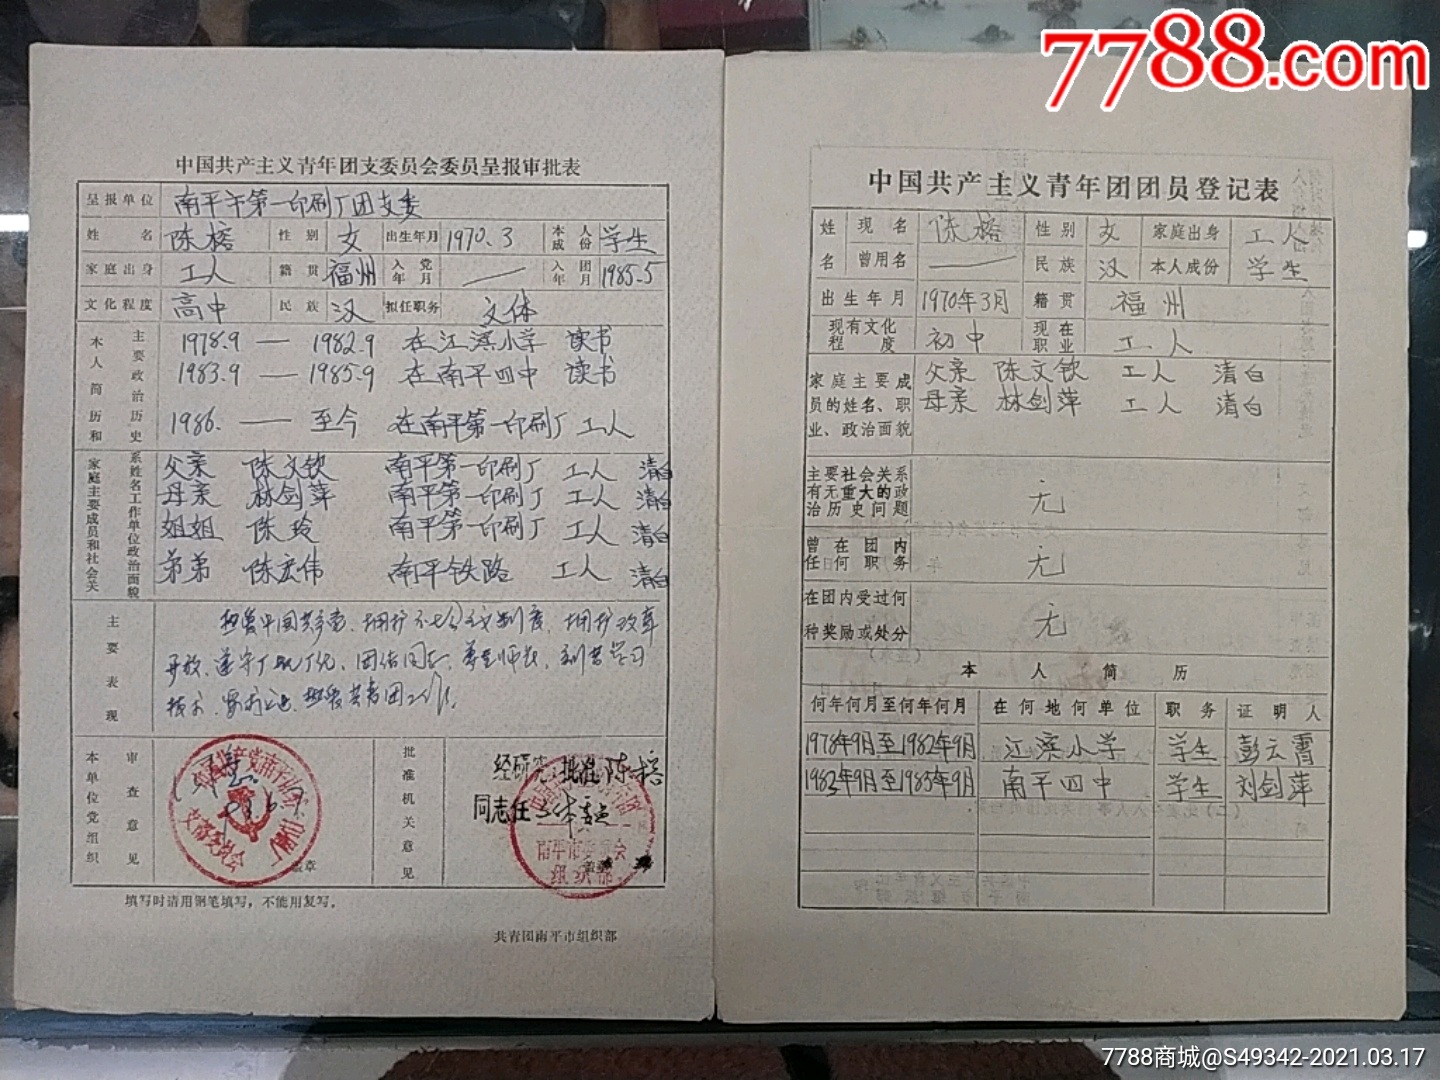 7788.com
中国共产主义青年团支委员会委员呈报审批表
呈报单位 南平市第一印刷厂团支委
姓名 陈榕 性别 女 出生年月 1970.3 本人成份 学生
家庭出身 工人 籍贯 福州 入党年月 — 入团年月 1985.5
文化程度 高中 民族 汉 拟任职务 文体
本人简历和主要政治历史
1978.9 — 1982.9 在江滨小学 读书
1983.9 — 1985.9 在南平四中 读书
1986. — 至今 在南平第一印刷厂 工人
家庭主要成员和社会关系姓名工作单位政治面貌
父亲 陈文钦 南平第一印刷厂 工人 清白
母亲 林剑萍 南平第一印刷厂 工人 清白
姐姐 陈玲 南平第一印刷厂 工人 清白
弟弟 陈宏伟 南平铁路 工人 清白
主要表现
热爱中国共产党、拥护社会主义制度、拥护改革
开放、遵守厂规厂纪、团结同志、尊重师长、刻苦学习
技术、热爱共青团工作。
本单位党组织审查意见
支部委员会
盖章
批准机关意见
经研究,批准陈榕
同志任
南平市委员会
组织部
盖章
填写时请用钢笔填写,不能用复写。
共青团南平市组织部
中国共产主义青年团团员登记表
姓名 现名 陈榕 性别 女 家庭出身 工人
曾用名 — 民族 汉 本人成份 学生
出生年月 1970年3月 籍贯 福州
现有文化程度 初中 现在职业 工人
家庭主要成员的姓名、职业、政治面貌
父亲 陈文钦 工人 清白
母亲 林剑萍 工人 清白
主要社会关系有无重大的政治历史问题 无
曾在团内任何职务 无
在团内受过何种奖励或处分 无
本人简历
何年何月至何年何月 在何地何单位 职务 证明人
1978年9月至1982年9月 江滨小学 学生 彭云霄
1983年9月至1985年9月 南平四中 学生 刘剑萍
7788商城@S49342-2021.03.17